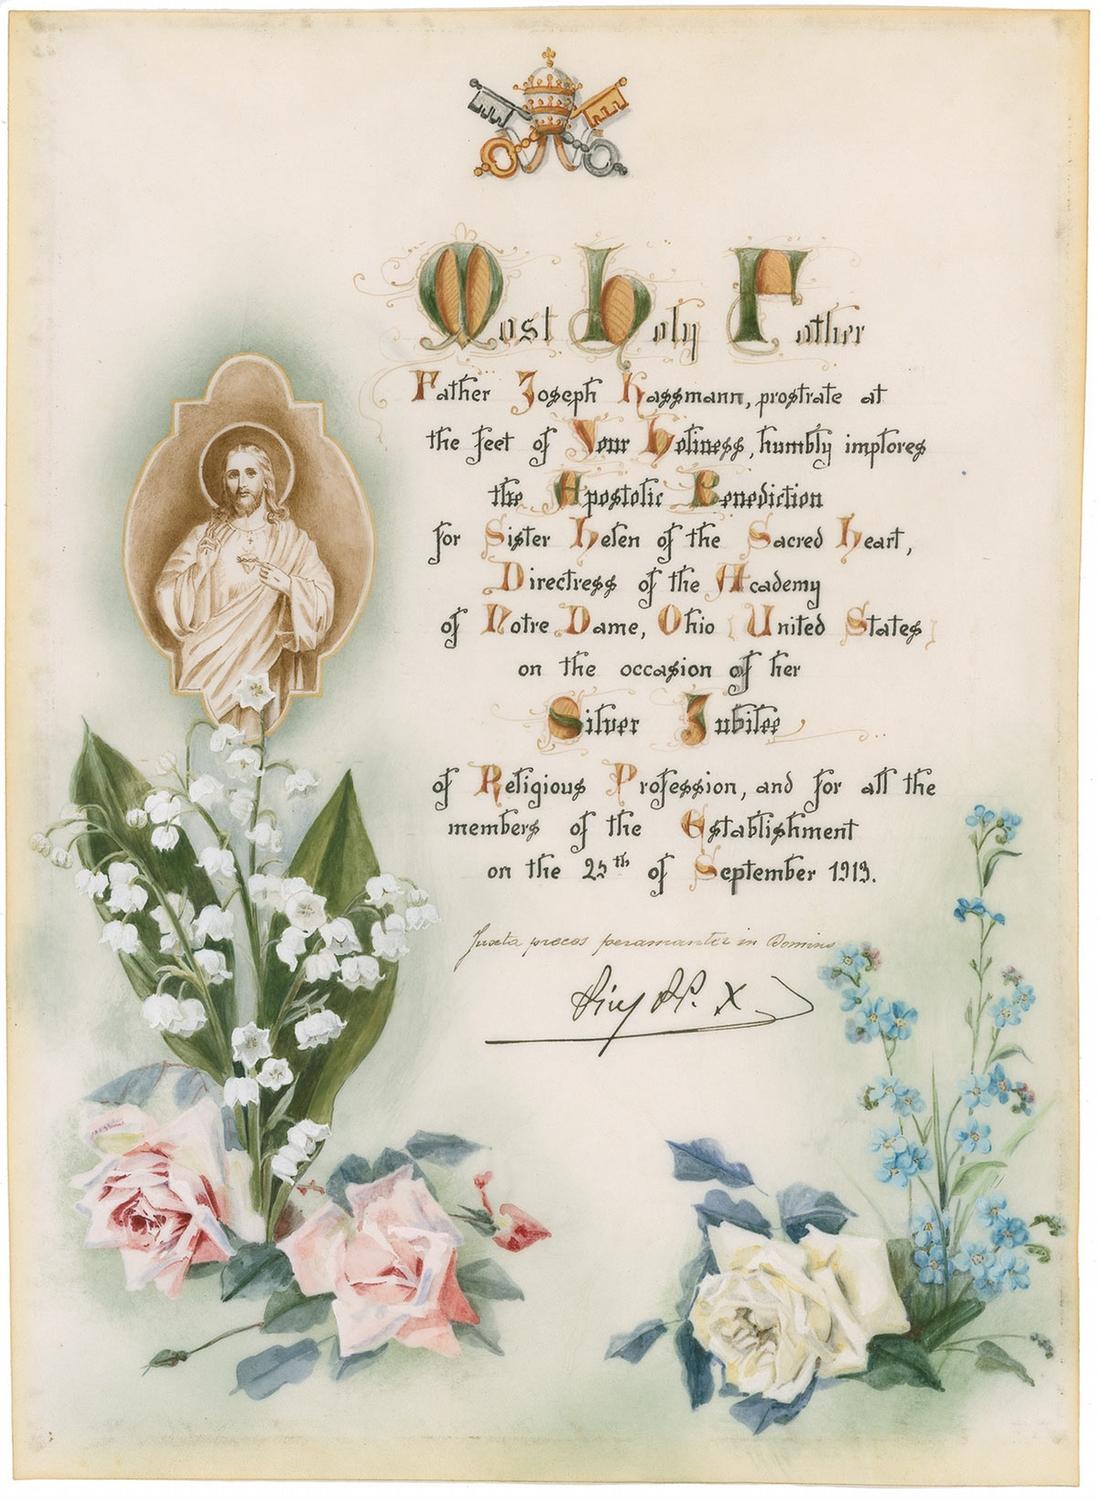 Most Holy Father
Father Joseph Hassmann, prostrate at
the feet of Your Holiness, humbly implores
the Apostolic Benediction
for Sister Helen of the Sacred Heart,
Directress of the Academy
of Notre Dame, Ohio (United States)
on the occasion of her
Silver Jubilee
of Religious Profession, and for all the
members of the Establishment
on the 25th of September 1913.
Juxta preces peramanter in Domino
Pius PP. X